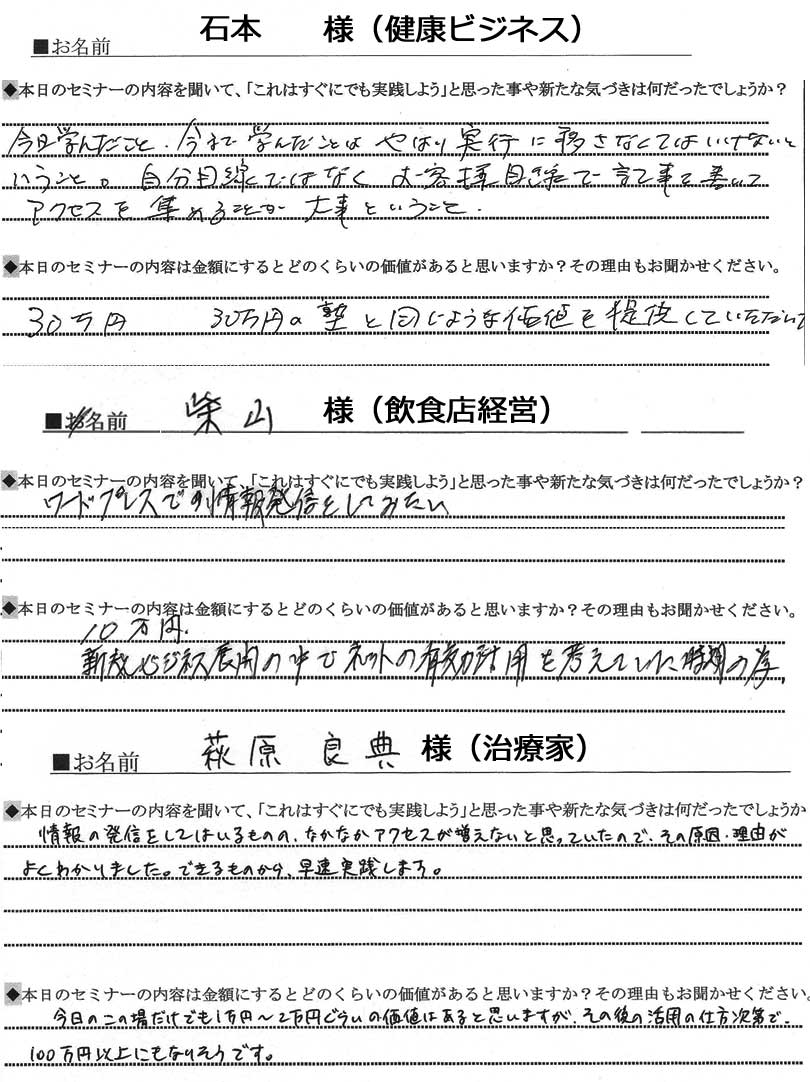 ■お名前 石本 様（健康ビジネス）
◆本日のセミナーの内容を聞いて、「これはすぐにでも実践しよう」と思った事や新たな気づきは何だったでしょうか？
今日学んだこと、今まで学んだことは やはり実行に移さなくてはいけないと
いうこと。自分目線ではなく お客様目線で 記事を書いて
アクセスを集めることが 大事ということ.
◆本日のセミナーの内容は金額にするとどのくらいの価値があると思いますか？その理由もお聞かせください。
30万円 30万円の塾と同じような価値を提供していただいて
■お名前 柴山 様（飲食店経営）
◆本日のセミナーの内容を聞いて、「これはすぐにでも実践しよう」と思った事や新たな気づきは何だったでしょうか？
ワードプレスでの情報発信をしてみたい
◆本日のセミナーの内容は金額にするとどのくらいの価値があると思いますか？その理由もお聞かせください。
10万円.
新規ビジネス展開の中でネットの有効活用を考えていた時期の為、
■お名前 萩原 良典 様（治療家）
◆本日のセミナーの内容を聞いて、「これはすぐにでも実践しよう」と思った事や新たな気づきは何だったでしょうか
情報の発信をしてはいるものの、なかなかアクセスが増えないと思っていたので、その原因・理由が
よくわかりました。できるものから、早速実践します。
◆本日のセミナーの内容は金額にするとどのくらいの価値があると思いますか？その理由もお聞かせください。
今日のこの場だけでも1万円～2万円ぐらいの価値はあると思いますが、その後の活用の仕方次第で、
100万円以上にもなりそうです。